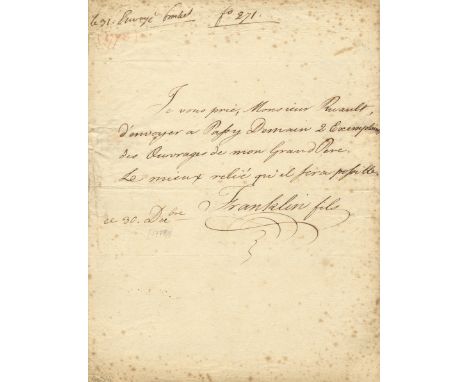 le 31. Envoyé fo 271.
Je vous prie, Monsieur Ruault,
d'envoyer a Passy Demain 2 Exemplaires
des Ouvrages de mon Grand Pere.
Le mieux relié qu'il sera possible.
Franklin fils
ce 30. Decbre